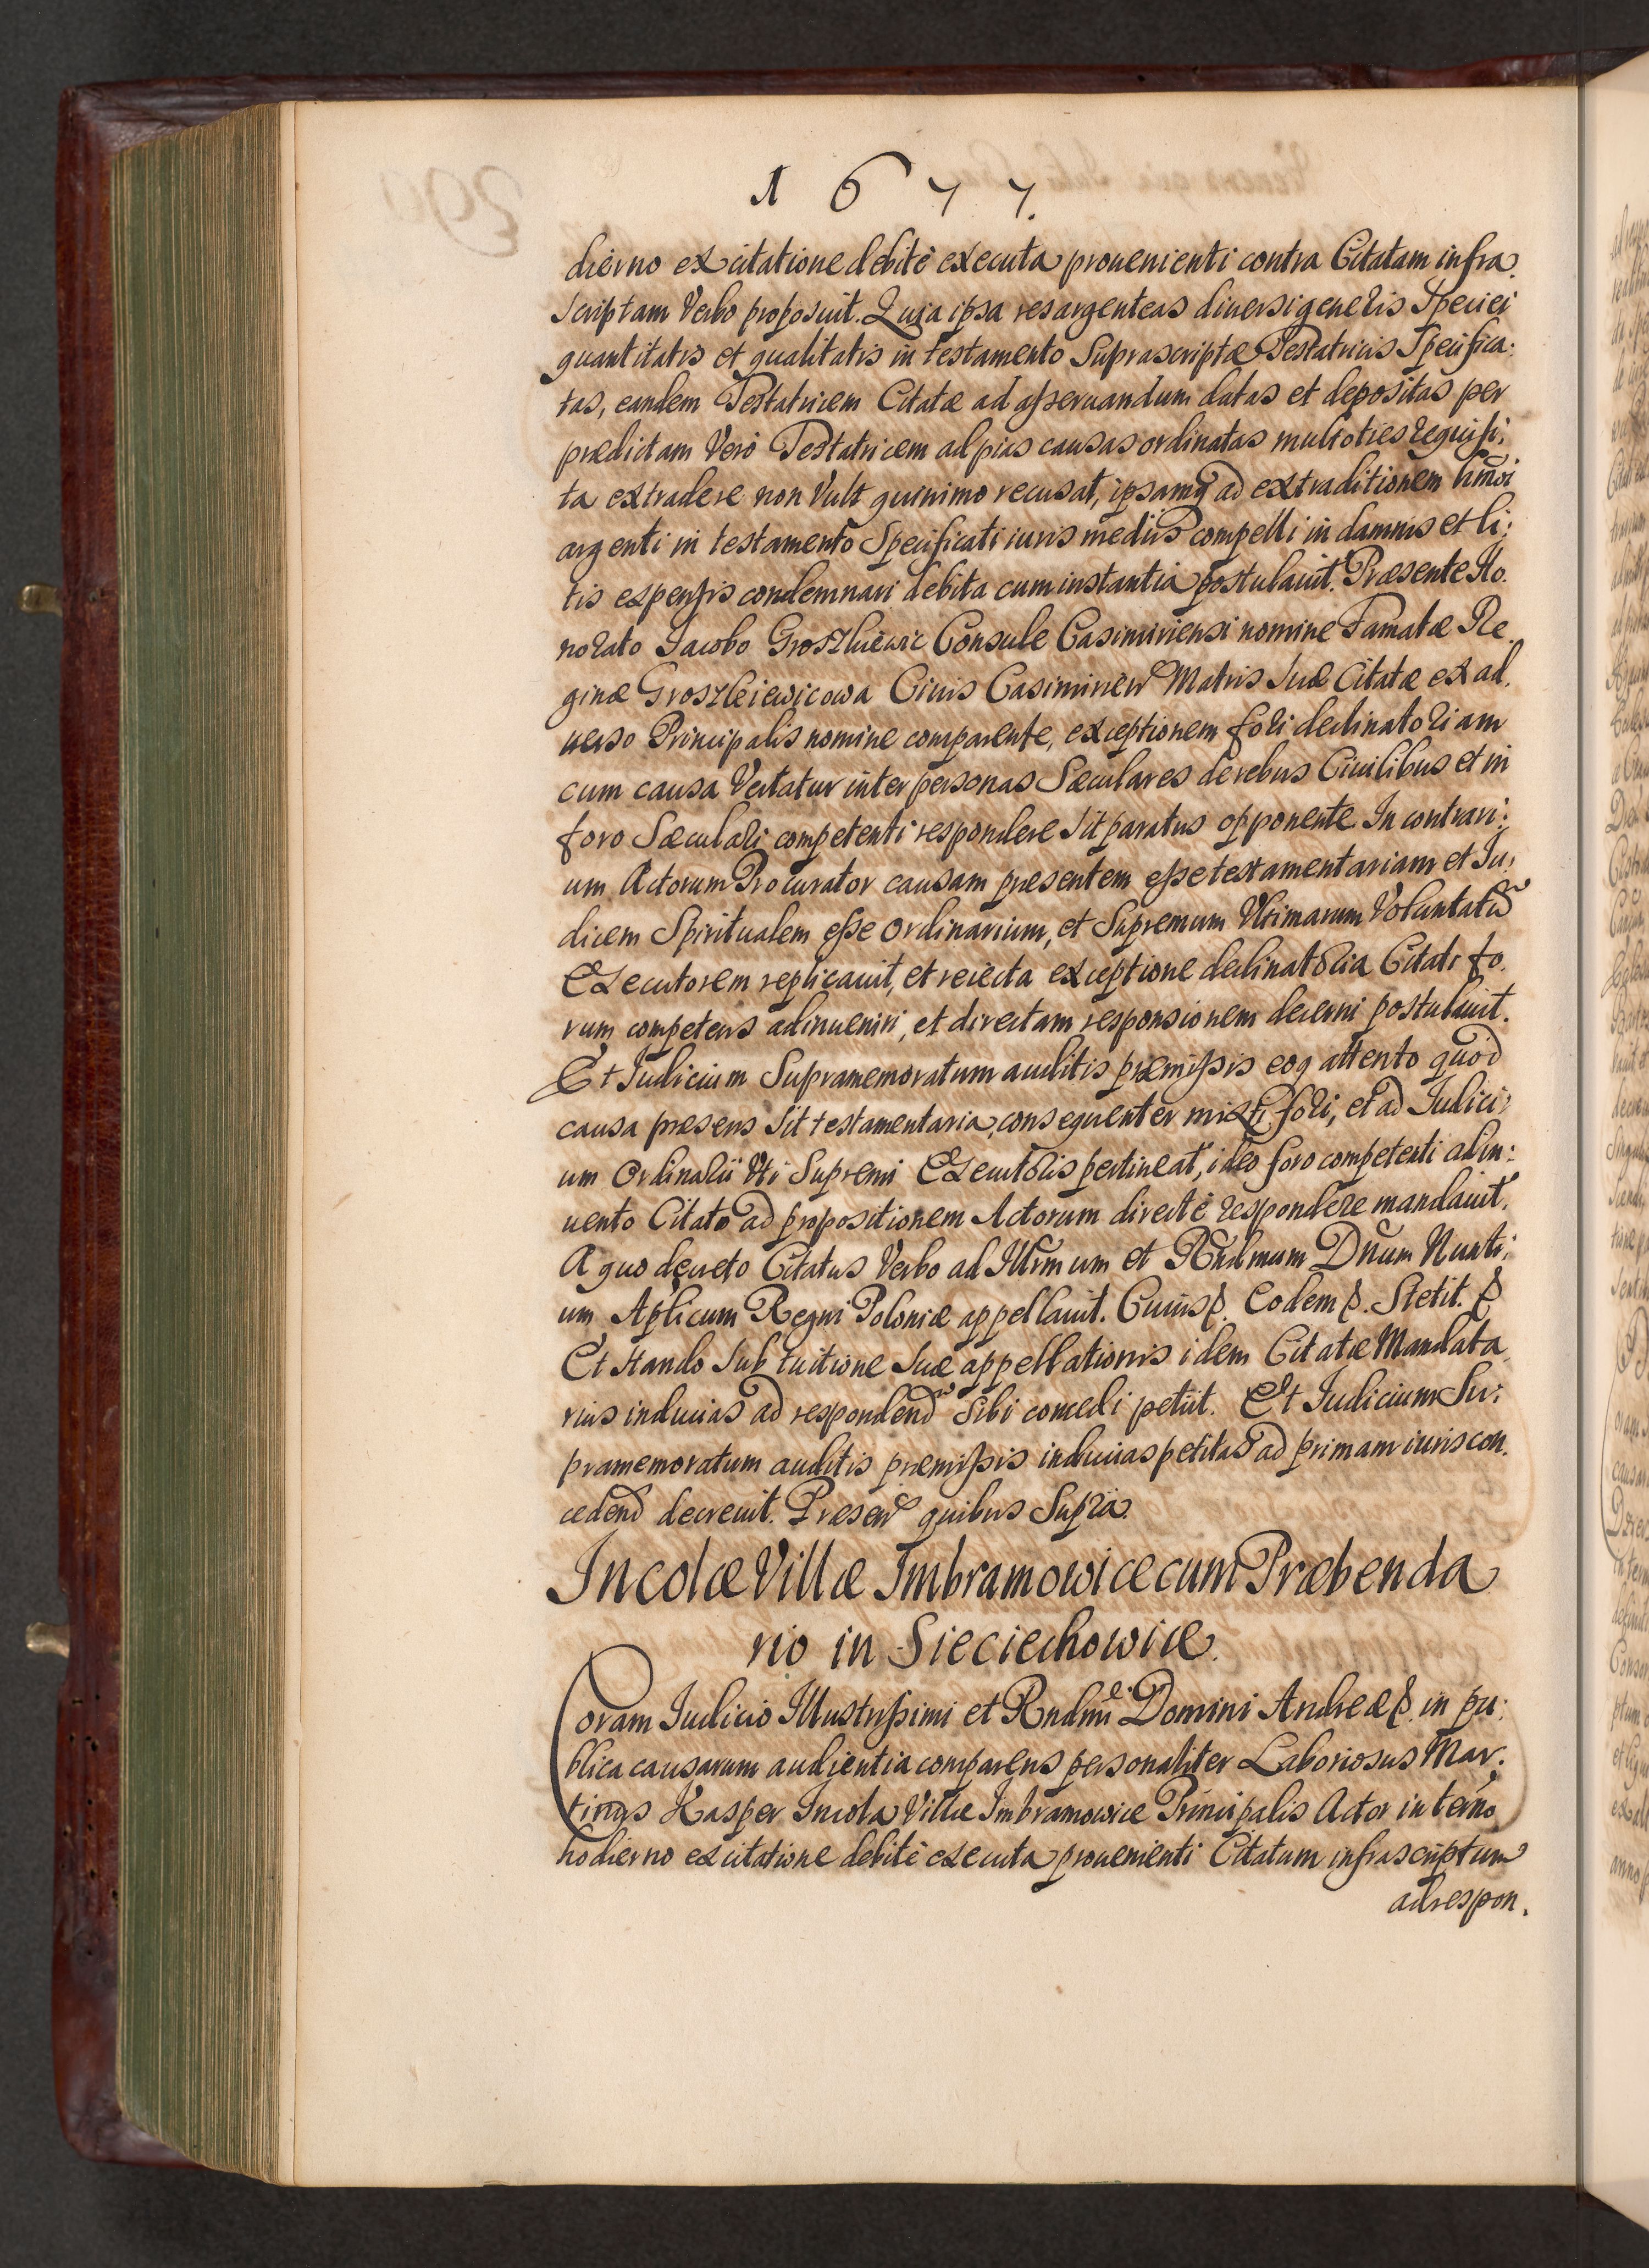 1677.
dierno ex citatione debite executa prouenienti contra Citatam infra
scriptam Verbo proposuit. Quia ipsa res argenteas diuersi generis Speciei
quantitatis et qualitatis in testamento Suprascriptæ Testatricis Specifica:
tas, eandem Testatricem Citatæ ad asseruandum datas et depositas per
prædictam Verò Testatricem ad pias causas ordinatas multoties requisi:
ta extradere non Vult quinimo recusat, ipsamq ad extraditionem hmõi
argenti in testamento Specificati iuris mediis compelli in damnis et li:
tis expensis condemnari debita cum instantia postulauit. Præsente Ho.
norato Iacobo Groszkiewic Consule Casimiriensi nomine Famatæ Re
ginæ Groszkiewicowa Ciuis Casimirien Matris suæ Citatæ ex ad,
uerso Principalis nomine comparente, exceptionem fori declinatoriam
cum causa Vertatur inter personas Sæculares de rebus Ciuilibus et in
foro Sæculari competenti respondere sit paratus opponente. In contrari:
um Actorum Procurator causam præsentem esse testamentariam et Iu,
dicem Spiritualem esse Ordinarium, et Supremum Vltimarum Voluntatũ
Executorem replicauit, et reiecta exceptione declinatoria Citati fo.
rum competens adinueniri, et directam responsionem decerni postulauit.
Et Iudicium Supramemoratum auditis præmissis eoq attento quòd
causa præsens sit testamentaria, consequenter mixti fori, et ad Iudici,
um Ordinarii Vti Supremi Executoris pertineat, ideo foro competenti adin:
uento Citato ad propositionem Actorum directè respondere mandauit.
A quo decreto Citatus Verbo ad Illrmum et Rndmum Dnum Nunti:
um Aplicum Regni Poloniæ appellauit. Cuius &. Eodem &. Stetit. &
Et stando sub tuitione suæ appellationis idem Citatæ Mandata
rius inducias ad respondend sibi concedi petiit. Et Iudicium Su:
pramemoratum auditis præmissis inducias petitas ad primam iuris con.
cedend decreuit. Presen quibus Supra.
Incolæ Villæ Imbramowice cum Præbenda
rio in Sieciechowice.
Coram Iudicio Illustrissimi et Rndmi Domini Andreæ &. in pu:
blica causarum audientia comparens personaliter Laboriosus Mar:
tinus Kasper Incola Villæ Imbramowice Principalis Actor in terno
hodierno ex citatione debitè executa prouenienti Citatum infrascriptum
ad respon.